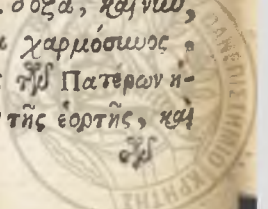 δόξα, καὶ νῦν,
χαρμόσυνος.
τῶν Πατέρων ἡ-
τῆς ἑορτῆς, καὶ
τῶν
ΠΑΝΕΠΙΣΤΗΜΙΟ ΚΡΗΤΗΣ